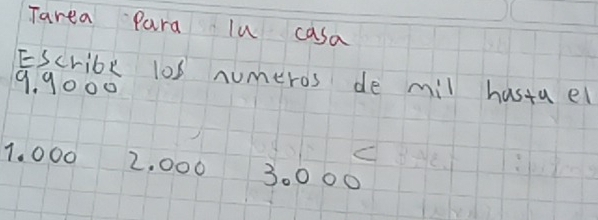 Tarea Para la casa
Escribe los numeros de mil hasta el
9.9000
1.000 2.000 3.000